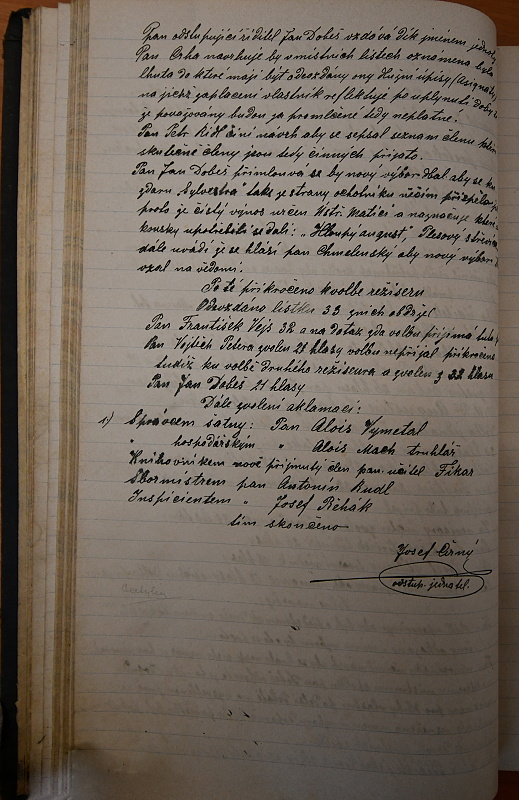 Pan odstupující řiditel Jan Dobeš vzdává dík jménem jednoty
Pan Crha navrhuje by v místních listech oznámena byla
lhuta do které mají být odevzdány ony dlužní úpisy
na jichž zaplacení vlastník reflektuje po uplynutí doby
že považovány budou za promlčené tedy neplatné.
Pan Petr Rídl činí návrh aby se sepsal seznam členu
skutečné členy jsou tedy činných přijato.
Pan Jan Dobeš přimlouvá se by nový výbor dbal aby se ku
zdaru „Sylvestra" také ze strany ochotníku
proto je čistý výnos určen Ústř. Matici a naznačuje které
kousky upotřebiti se dali: „Hloupý august", Plesový střevíček
dále uvádí že se hlásí pan Chmelenský aby nový výbor
vzal na vědomí.
Poté přikročeno k volbě režiseru
Odevzdáno lístku 33 z nich obdržel
Pan František Vejs 32 a na dotaz zda volbu přijímá
Pan Vojtěch Petera zvolen 21 hlasy volbu nepřijal přikročeno
tudíž ku volbě druhého režiseura a zvolen z 32 hlasu
Pan Jan Dobeš 21 hlasy
Dále zvoleni aklamací:
1) Správcem šatny: Pan Alois Vymetal
" hospodářským " Alois Mach truhlář
Knihovníkem nově přijmutý člen pan učitel Fikar
Sbormistrem pan Antonín Rudl
Inspicientem " Josef Řehák
tím skončeno
Josef Černý
odstup. jednatel.